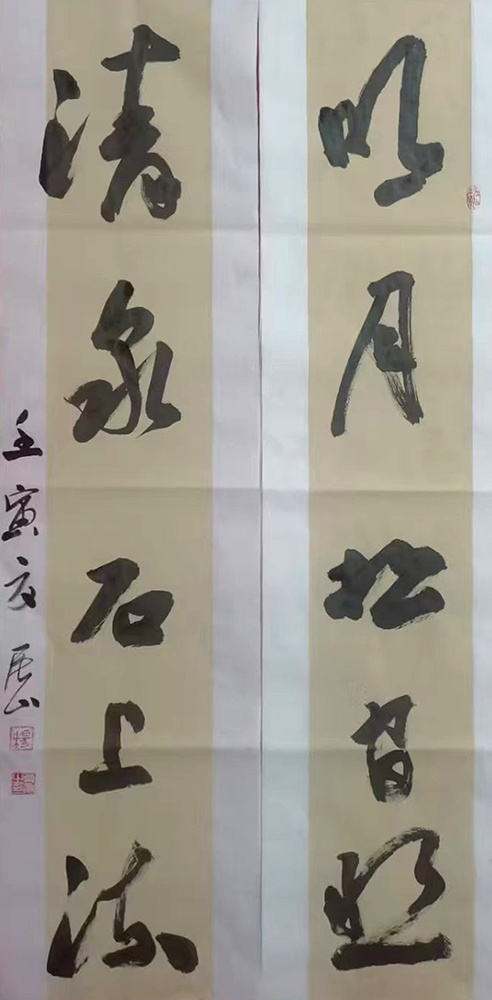 明月松间照
清泉石上流
壬寅夏